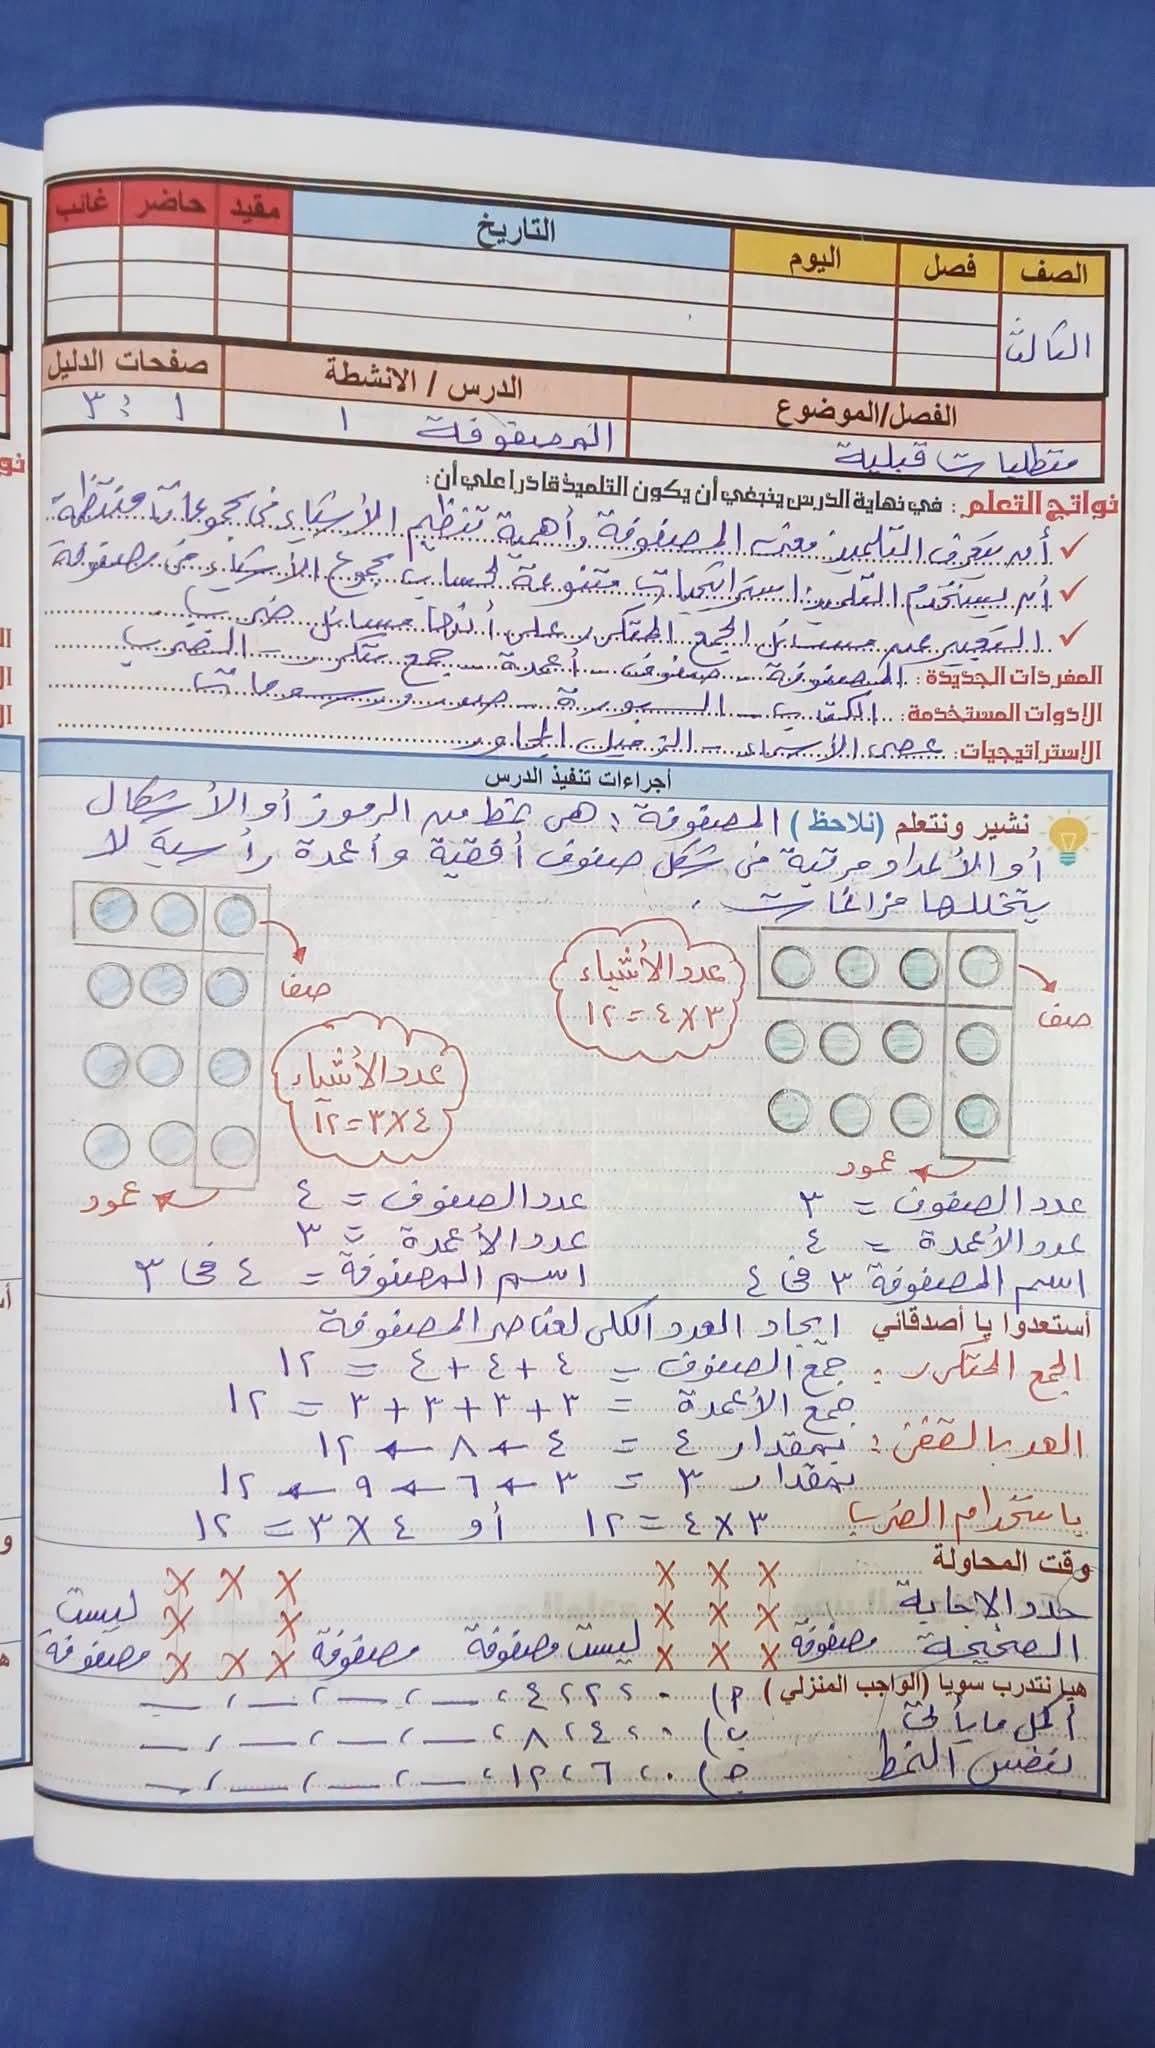 الصف فصل اليوم التاريخ مقيد حاضر غائب
الثالث
الفصل/الموضوع الدرس / الانشطة صفحات الدليل
متطلبات قبلية المصفوفة ١ ١ : ٣
نواتج التعلم : في نهاية الدرس ينبغي أن يكون التلميذ قادرا علي أن :
✓ أن يتعرف التلميذ معنى المصفوفة وأهمية تنظيم الأشياء فى مجموعات منتظمة
✓ أن يستخدم التلميذ استراتيجيات متنوعة لحساب مجموع الأشياء فى مصفوفة
✓ التعبير عن مسائل الجمع المتكرر على أنها مسائل ضرب
المفردات الجديدة : المصفوفة - صفوف - أعمدة - جمع متكرر - الضرب
الادوات المستخدمة : الكتاب - السبورة - صور ورسومات
الإستراتيجيات: عصى الأسماء - الزميل المجاور
أجراءات تنفيذ الدرس
نشير ونتعلم (نلاحظ) المصفوفة : هى نمط من الرموز أو الأشكال
أو الأعداد مرتبة فى شكل صفوف أفقية وأعمدة رأسية لا
يتخللها فراغات .
عدد الأشياء
٣ × ٤ = ١٢
صف
عمود
عدد الصفوف = ٣
عدد الأعمدة = ٤
اسم المصفوفة ٣ فى ٤
صف
عدد الأشياء
٤ × ٣ = ١٢
عمود
عدد الصفوف = ٤
عدد الأعمدة = ٣
اسم المصفوفة = ٤ فى ٣
أستعدوا يا أصدقائي ايجاد العدد الكلى لعناصر المصفوفة
الجمع المتكرر : جمع الصفوف = ٤ + ٤ + ٤ = ١٢
جمع الأعمدة = ٣ + ٣ + ٣ + ٣ = ١٢
العد بالقفز : بمقدار ٤ = ٤ ← ٨ ← ١٢
بمقدار ٣ = ٣ ← ٦ ← ٩ ← ١٢
باستخدام الضرب ٣ × ٤ = ١٢ أو ٤ × ٣ = ١٢
وقت المحاولة X X X X X X
حدد الاجابة X X X X X ليست
الصحيحة مصفوفة X X X ليست مصفوفة مصفوفة X X X مصفوفة
هيا نتدرب سويا (الواجب المنزلي) ٢) ٠ ، ٢ ، ٤ ، __ ، __ ، __ ، __
أكمل ما يأتى ب) ٠ ، ٤ ، ٨ ، __ ، __ ، __ ، __
بنفس النمط ج) ٠ ، ٦ ، ١٢ ، __ ، __ ، __ ، __